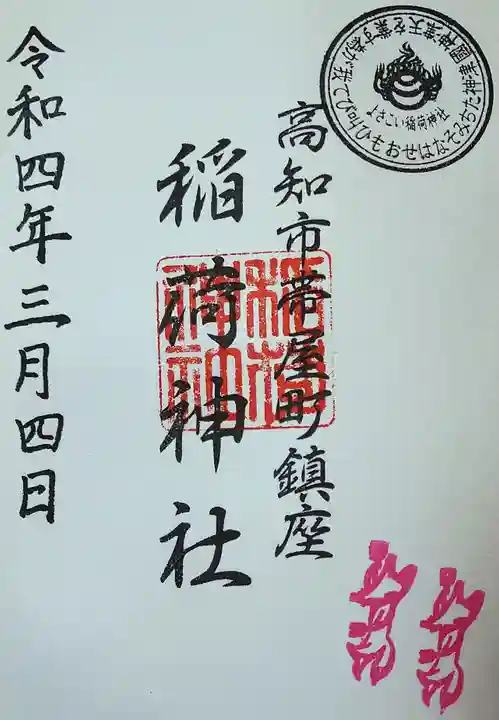 高知市帯屋町鎮座
稲荷神社
令和四年三月四日
よさこい稲荷神社